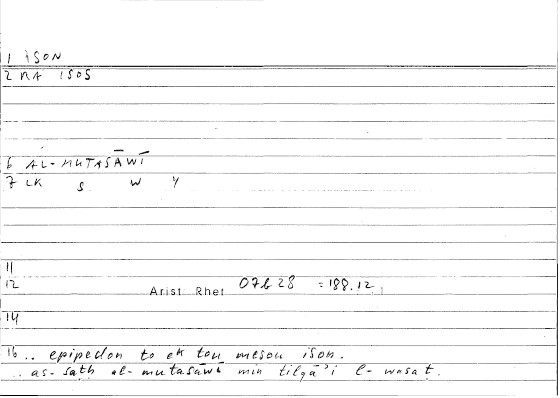 1 ISON
2 NA ISOS
6 AL-MUTASĀWĪ
7 LK S W Y
11
12 Arist. Rhet 07b28 =188.12
14
16 .. epipedon to ek tou mesou ison.
.. as-saṭḥ al-mutasāwī min tilqāʾi l-wasaṭ.